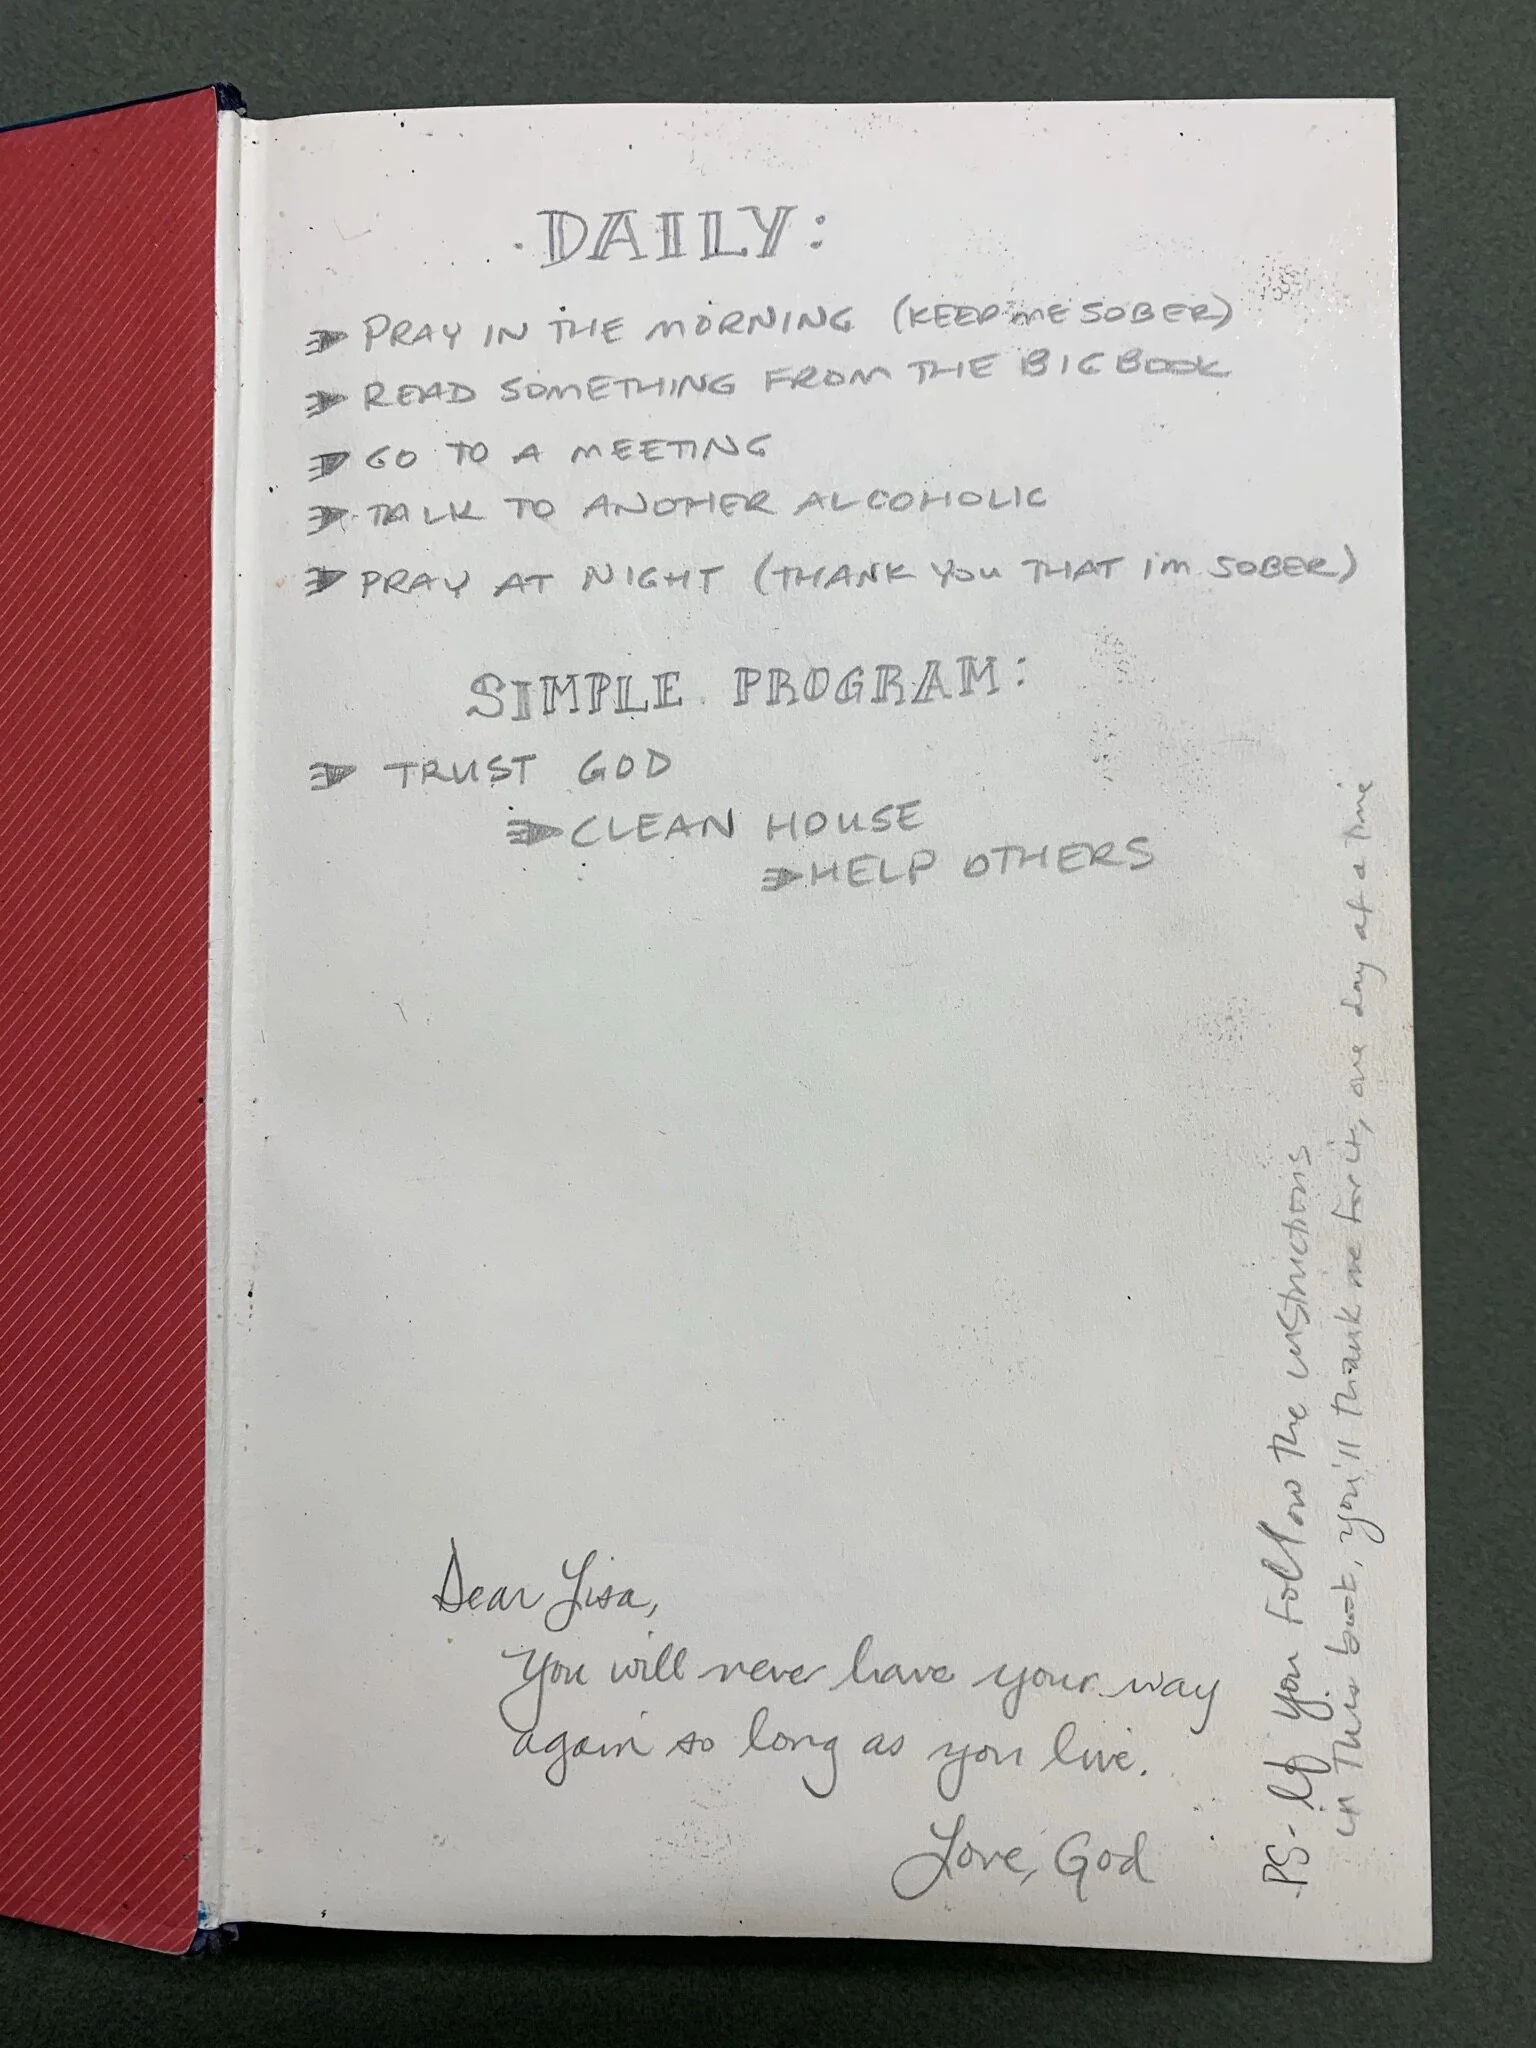 DAILY:
PRAY IN THE MORNING (KEEP ME SOBER)
READ SOMETHING FROM THE BIG BOOK
GO TO A MEETING
TALK TO ANOTHER ALCOHOLIC
PRAY AT NIGHT (THANK YOU THAT I'M SOBER)
SIMPLE PROGRAM:
TRUST GOD
CLEAN HOUSE
HELP OTHERS
Dear Lisa,
You will never have your way
again so long as you live.
Love, God
PS- If you follow the instructions
in this book, you'll thank me for it, one day at a time